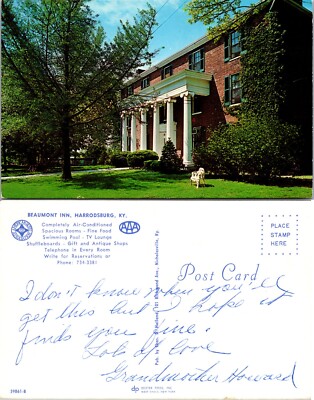 BEAUMONT INN, HARRODSBURG, KY.
Completely Air-Conditioned
Spacious Rooms - Fine Food
Swimming Pool - TV Lounge
Shuffleboards - Gift and Antique Shops
Telephone in Every Room
Write for Reservations or
Phone: 734-3381
AAA
PLACE
STAMP
HERE
Post Card
I don't know when you'll
get this but I hope it
finds you fine.
Lots of love
Grandmother Howard
Nicholasville, Ky.
39861-B